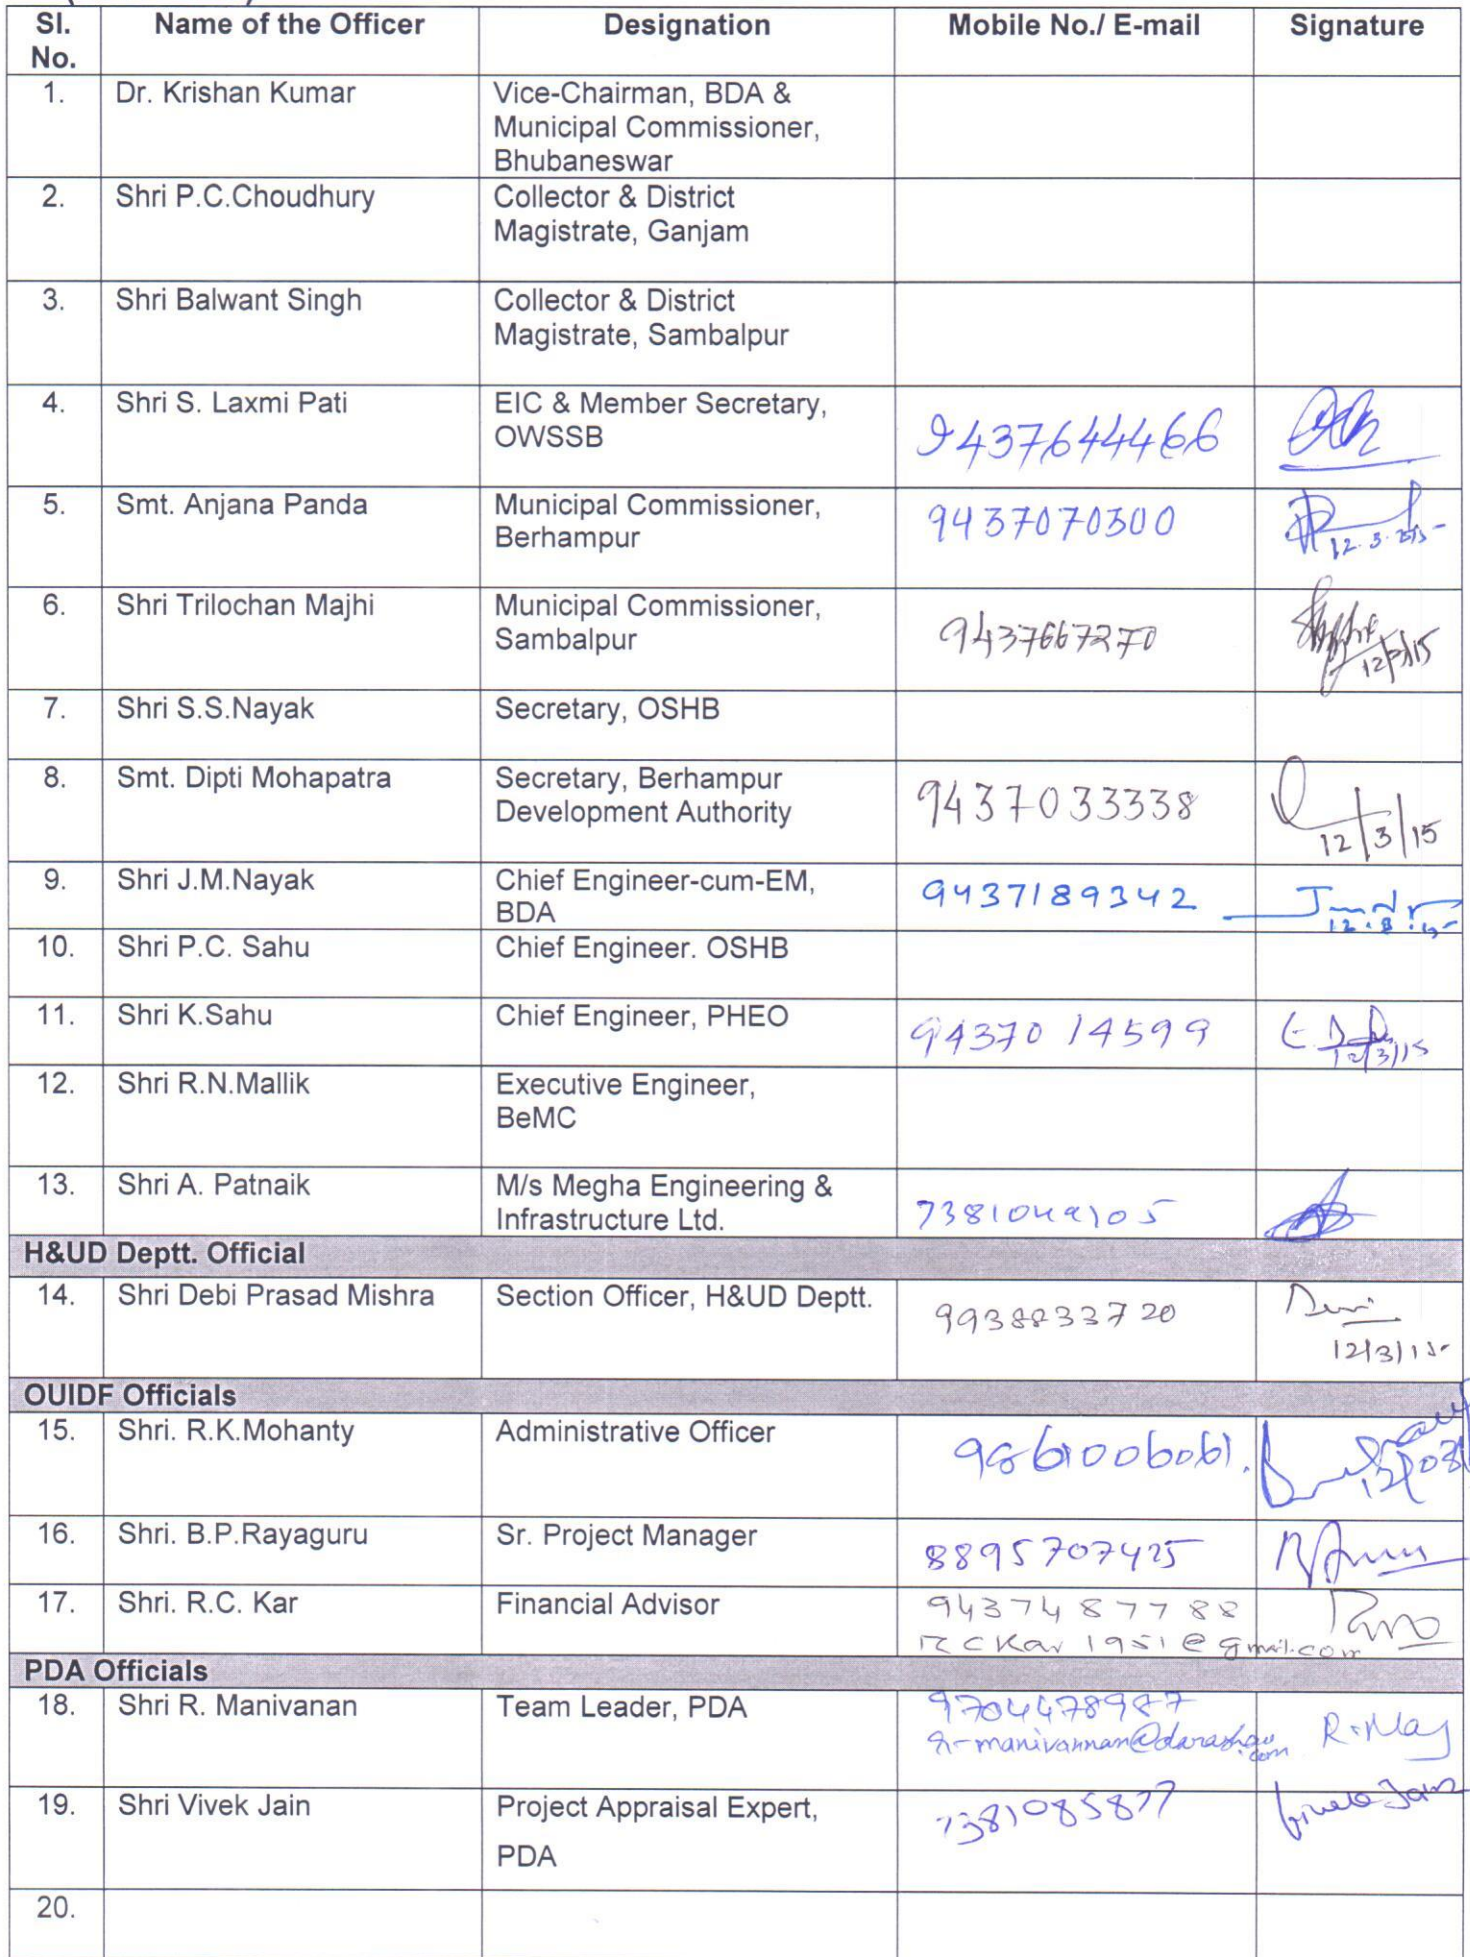 Sl. No. Name of the Officer Designation Mobile No./ E-mail Signature
1. Dr. Krishan Kumar Vice-Chairman, BDA &
Municipal Commissioner,
Bhubaneswar
2. Shri P.C.Choudhury Collector & District
Magistrate, Ganjam
3. Shri Balwant Singh Collector & District
Magistrate, Sambalpur
4. Shri S. Laxmi Pati EIC & Member Secretary,
OWSSB 9437644466
5. Smt. Anjana Panda Municipal Commissioner,
Berhampur 9437070300
12.3.2015
6. Shri Trilochan Majhi Municipal Commissioner,
Sambalpur 9437667270
12/3/15
7. Shri S.S.Nayak Secretary, OSHB
8. Smt. Dipti Mohapatra Secretary, Berhampur
Development Authority 9437033338
12/3/15
9. Shri J.M.Nayak Chief Engineer-cum-EM,
BDA 9437189342
12.3.15
10. Shri P.C. Sahu Chief Engineer. OSHB
11. Shri K.Sahu Chief Engineer, PHEO 94370 14599
12/3/15
12. Shri R.N.Mallik Executive Engineer,
BeMC
13. Shri A. Patnaik M/s Megha Engineering &
Infrastructure Ltd. 7381049105
H&UD Deptt. Official
14. Shri Debi Prasad Mishra Section Officer, H&UD Deptt. 9938833720
12/3/15
OUIDF Officials
15. Shri. R.K.Mohanty Administrative Officer 9861006061.
16. Shri. B.P.Rayaguru Sr. Project Manager 8895707425
17. Shri. R.C. Kar Financial Advisor 9437487788
rckar1951@gmail.com
PDA Officials
18. Shri R. Manivanan Team Leader, PDA 9704478987
r-manivannan@darashaw.com
19. Shri Vivek Jain Project Appraisal Expert,
PDA 7381085877 Vivek Jain
20.